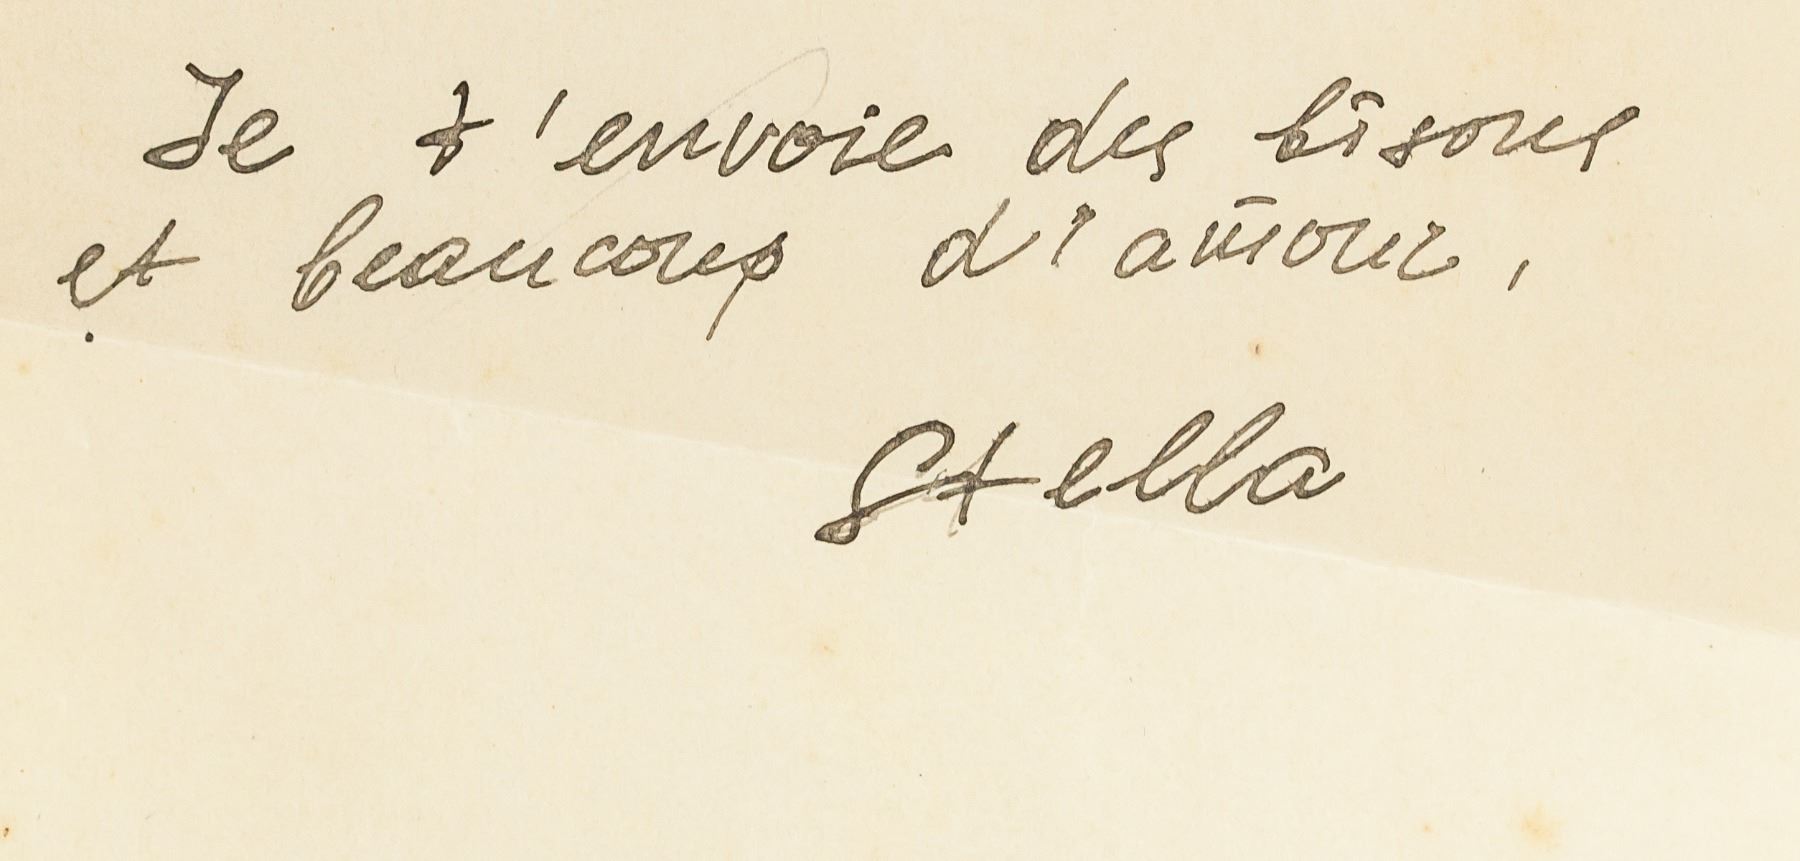 Je t'envoie des bisous
et beaucoup d'amour,
Stella